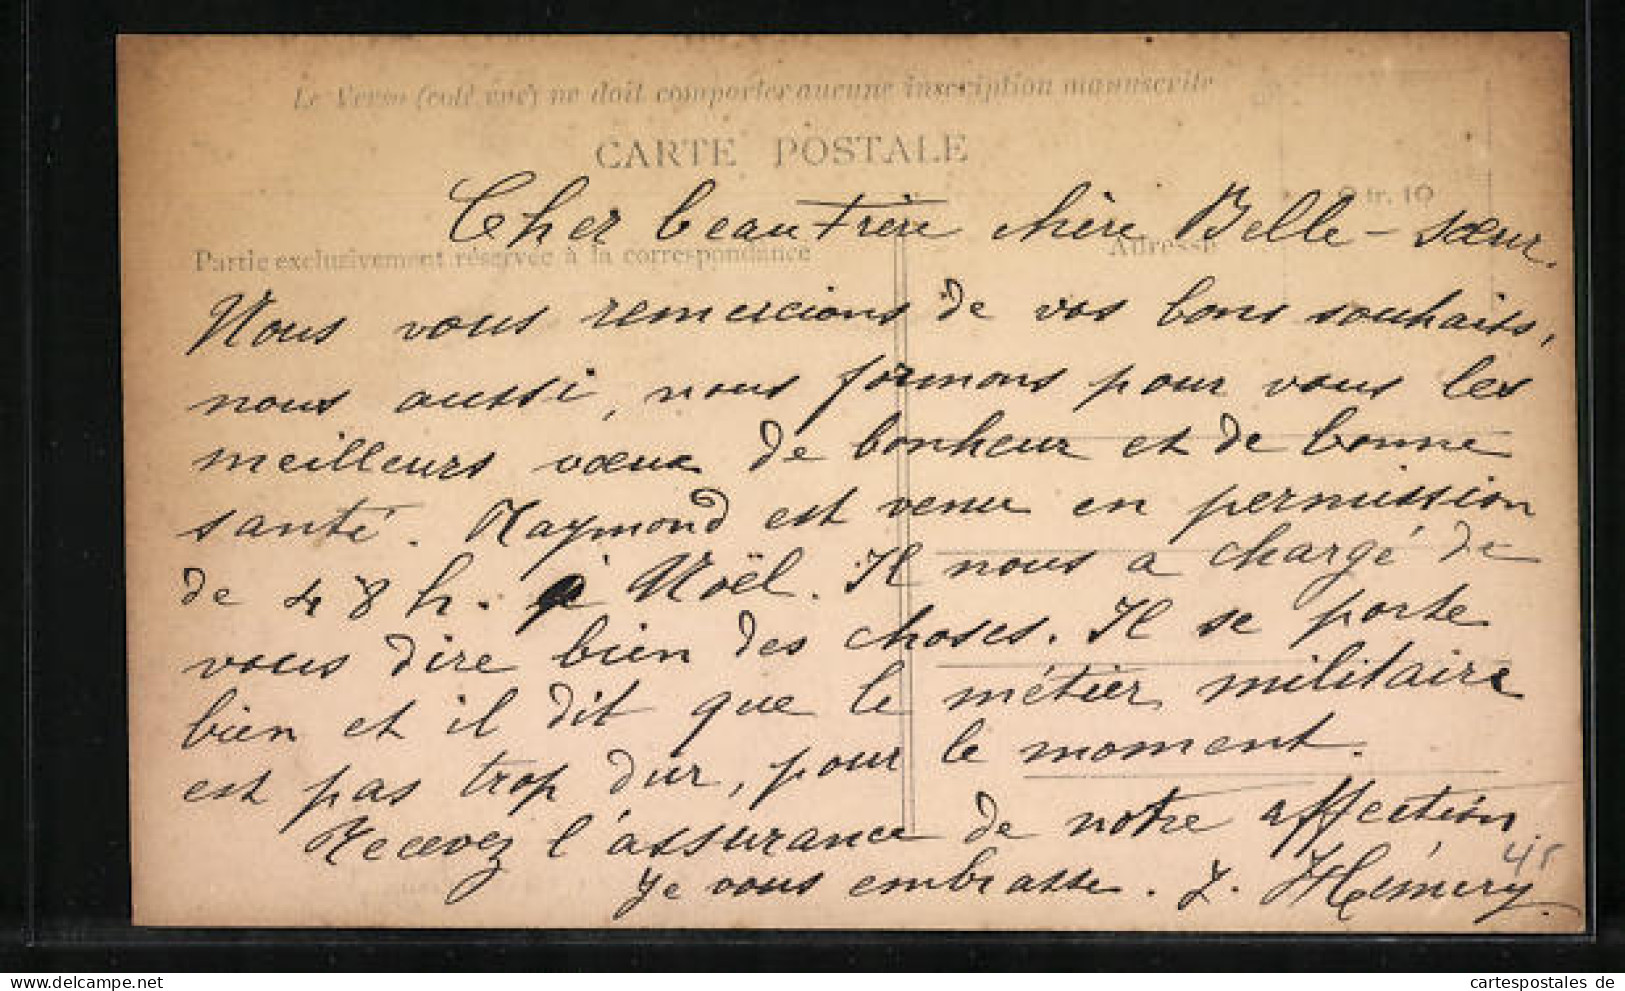 Le Verso (coté vue) ne doit comporter aucune inscription manuscrite
CARTE POSTALE
0 fr. 10
Cher beau Frère chère Belle-sœur.
Partie exclusivement réservée à la correspondance
Adresse
Nous vous remercions de vos bons souhaits,
nous aussi, nous formons pour vous les
meilleurs vœux de bonheur et de bonne
santé. Raymond est venu en permission
de 48 h. à Noël. Il nous a chargé de
vous dire bien des choses. Il se porte
bien et il dit que le métier militaire
est pas trop dur, pour le moment.
Recevez l'assurance de notre affection.
Je vous embrasse. Y. Hémery.
45
cartespostales de